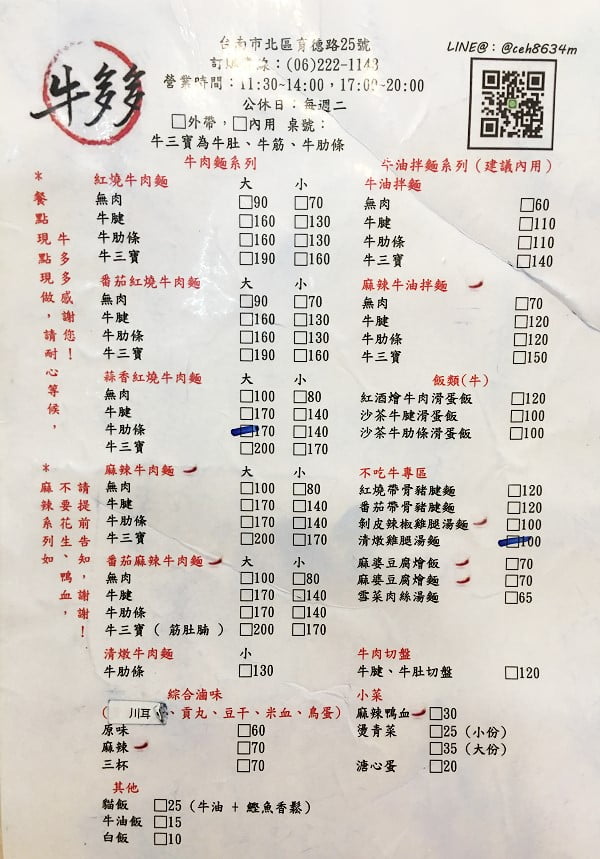 牛多多
台南市北區育德路25號
訂購專線：(06)222-1143
營業時間：11:30~14:00，17:00~20:00
公休日：每週二
□外帶，□內用 桌號：
牛三寶為牛肚、牛筋、牛肋條
LINE@：@ceh8634m
牛肉麵系列
紅燒牛肉麵 大 小
無肉 □90 □70
牛腱 □160 □130
牛肋條 □160 □130
牛三寶 □190 □160
番茄紅燒牛肉麵 大 小
無肉 □90 □70
牛腱 □160 □130
牛肋條 □160 □130
牛三寶 □190 □160
蒜香紅燒牛肉麵 大 小
無肉 □100 □80
牛腱 □170 □140
牛肋條 □170 □140
牛三寶 □200 □170
麻辣牛肉麵 大 小
無肉 □100 □80
牛腱 □170 □140
牛肋條 □170 □140
牛三寶 □200 □170
番茄麻辣牛肉麵 大 小
無肉 □100 □80
牛腱 □170 □140
牛肋條 □170 □140
牛三寶（筋肚腩） □200 □170
清燉牛肉麵 小
牛肋條 □130
綜合滷味
(川耳、貢丸、豆干、米血、鳥蛋)
原味 □60
麻辣 □70
三杯 □70
其他
貓飯 □25 (牛油 + 鰹魚香鬆)
牛油飯 □15
白飯 □10
牛油拌麵系列(建議內用)
牛油拌麵
無肉 □60
牛腱 □110
牛肋條 □110
牛三寶 □140
麻辣牛油拌麵
無肉 □70
牛腱 □120
牛肋條 □120
牛三寶 □150
飯類(牛)
紅酒燴牛肉滑蛋飯 □120
沙茶牛腱滑蛋飯 □100
沙茶牛肋條滑蛋飯 □100
不吃牛專區
紅燒帶骨豬腱麵 □120
番茄帶骨豬腱麵 □120
剝皮辣椒雞腿湯麵 □100
清燉雞腿湯麵 □100
麻婆豆腐燴飯 □70
麻婆豆腐燴麵 □70
雪菜肉絲湯麵 □65
牛肉切盤
牛腱、牛肚切盤 □120
小菜
麻辣鴨血 □30
燙青菜 □25 (小份)
□35 (大份)
溏心蛋 □20
*餐點現點現做，請耐心等候，
牛多多感謝您!
*麻辣系列如
不要花生、鴨血，
請提前告知，謝謝!